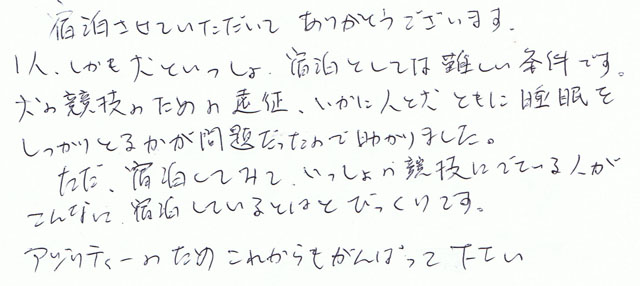 宿泊させていただいて ありがとうございます。
1人、しかも犬といっしょ、宿泊としては難しい条件です。
犬の競技のための遠征、いかに人と犬ともに睡眠を
しっかりとるかが問題だったので助かりました。
ただ、宿泊してみて、いっしょの競技にでている人が
こんなに宿泊しているとはとびっくりです。
アジリティーのためこれからもがんばって下さい